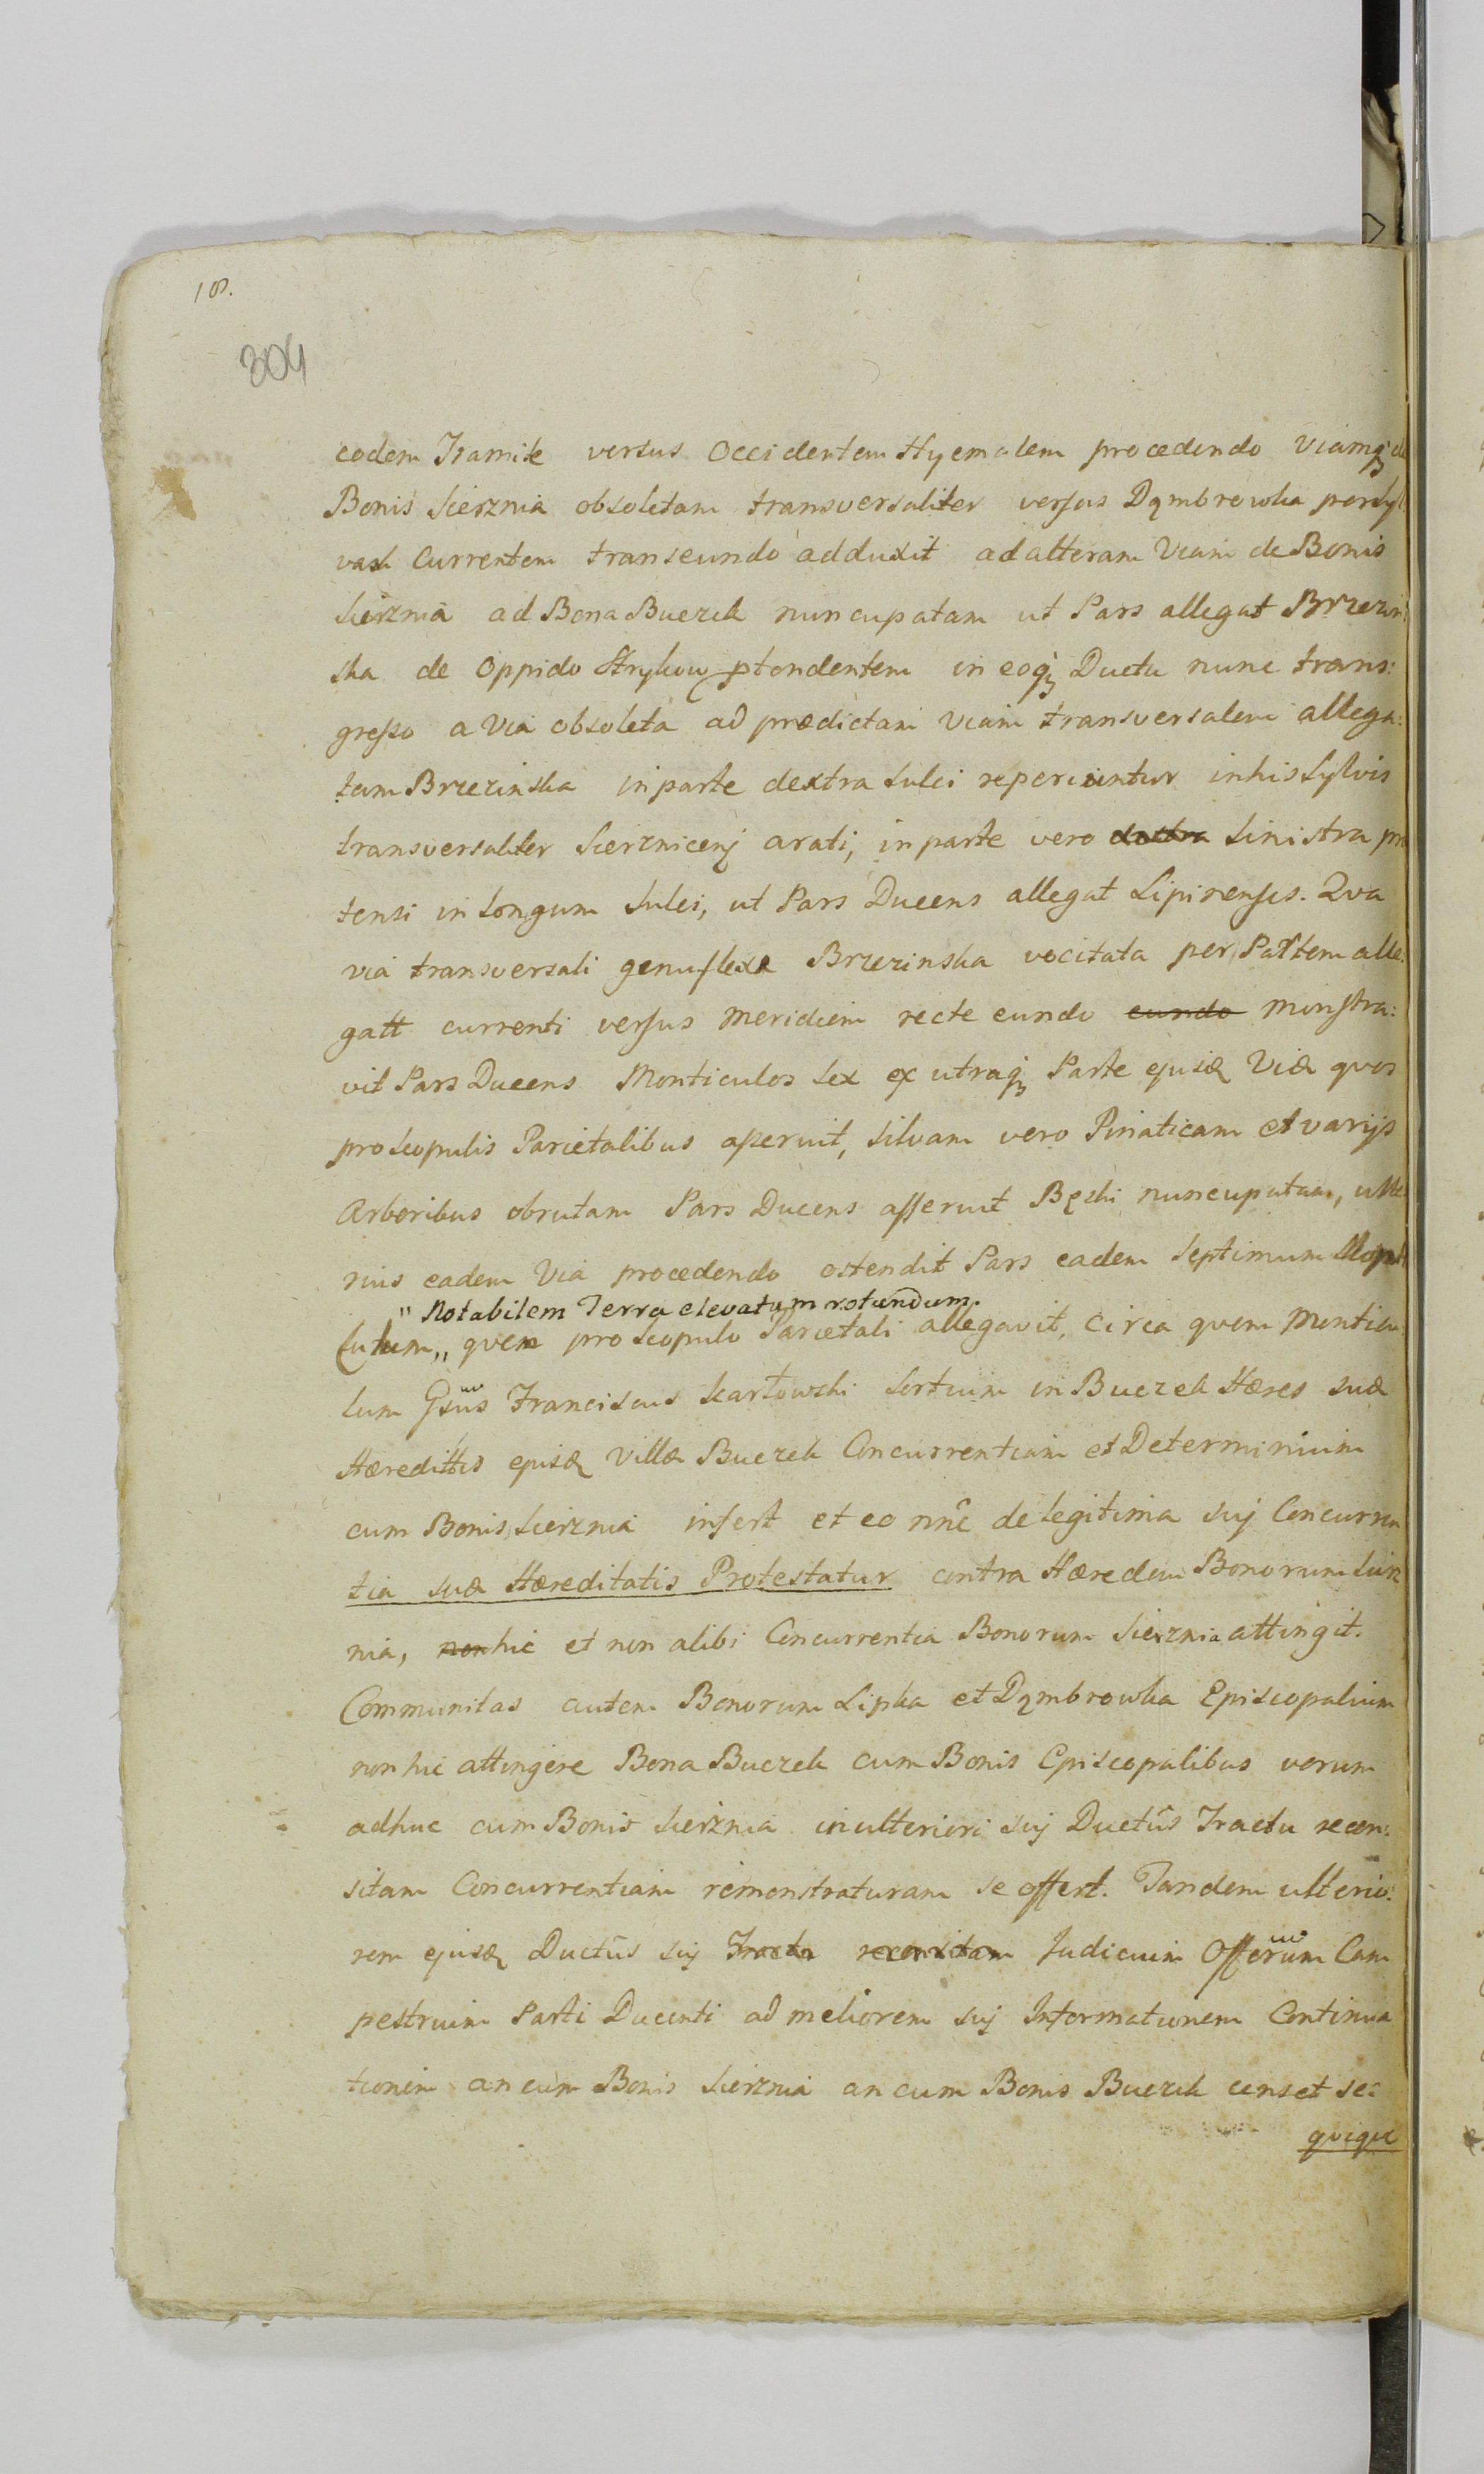 18.
304
eodem Tramite versus Occidentem Hyemalem procedendo Viamq; de
Bonis Sierznia obsoletam transversaliter versus Dąmbrowka per Syl
vas Currentem transeundo adduxit ad alteram Viam de Bonis
Sierznia ad Bona Buczek nuncupatam ut Pars allegat Brzezin
ska de Oppido Strykow ptendentem in eoq; Ductu nunc trans:
gresso a Via obsoleta ad prædictam Viam transversalem allega:
tam Brzezinska in parte dextra Sulci reperiuntur in his Sylvis
transversaliter Sierznicenj arati, in parte vero dextra Sinistra pro
tensi in Longum Sulci, ut Pars Ducens allegat Lipinenses. Qva
via transversali genuflexa Brzezinska vocitata per Partem alle:
gatt currenti versus Meridiem recte eundo eundo Monstra:
vit Pars Ducens Monticulos Sex ex utraq; Parte ejusd Viæ qvos
pro Scopulis Parietalibus aperuit, Silvam vero Piniaticam et varijs
Arboribus obrutam Pars Ducens asseruit Bęski nuncupatam, ulte
rius eadem Via procedendo ostendit Pars eadem Septimum
" Notabilem Terra elevatum rotundum.
Culum,, qvem pro Scopulo Parietali allegavit, Circa qvem Monticu
lum Gsus Franciscus Skarłowski Sortium in Buczek Hæres suæ
Hæredittis ejusd Villæ Buczek Concurrentiam et Determinium
cum Bonis Sierznia infert et eo nnc de Legitima Suj Concurren
tia suæ Hæreditatis Protestatur contra Hæredem Bonorum Sierz
nia, non hic et non alibi Concurrentia Bonorum Sierznia attingit.
Communitas autem Bonorum Lipka et Dąmbrowka Episcopalium
non hic attingere Bona Buczek cum Bonis Episcopalibus verum
adhuc cum Bonis Sierznia in ulteriori Suj Ductûs Tractu recen:
sitam Concurrentiam remonstraturam se offert. Tandem ulterio:
rem ejusd Ductûs Suj Tractu recensitam Judicium Offerum Cam
pestruim Parti Ducenti ad meliorem Suj Informationem Continua
tionem an cum Bonis Sierznia an cum Bonis Buczek censet se:
qvique